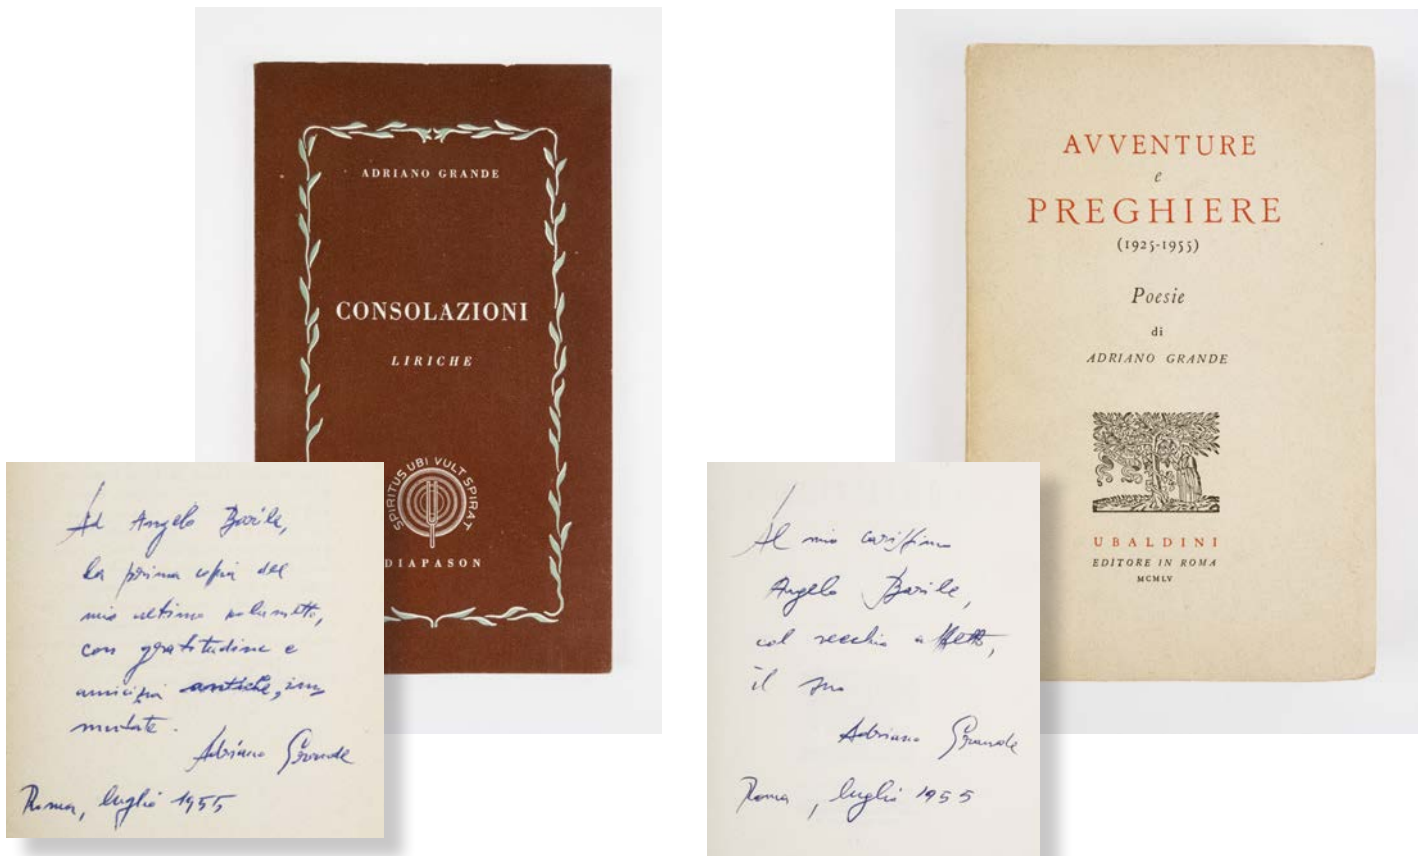 ADRIANO GRANDE
CONSOLAZIONI
LIRICHE
SPIRITUS UBI VULT SPIRAT
DIAPASON
Ad Angelo Barile,
la prima copia del
mio ultimo volumetto,
con gratitudine e
amicizia antiche, im
mutate.
Adriano Grande
Roma, luglio 1955
AVVENTURE
e
PREGHIERE
(1925-1955)
Poesie
di
ADRIANO GRANDE
UBALDINI
EDITORE IN ROMA
MCMLV
Al mio carissimo
Angelo Barile,
col vecchio affetto,
il suo
Adriano Grande
Roma, luglio 1955